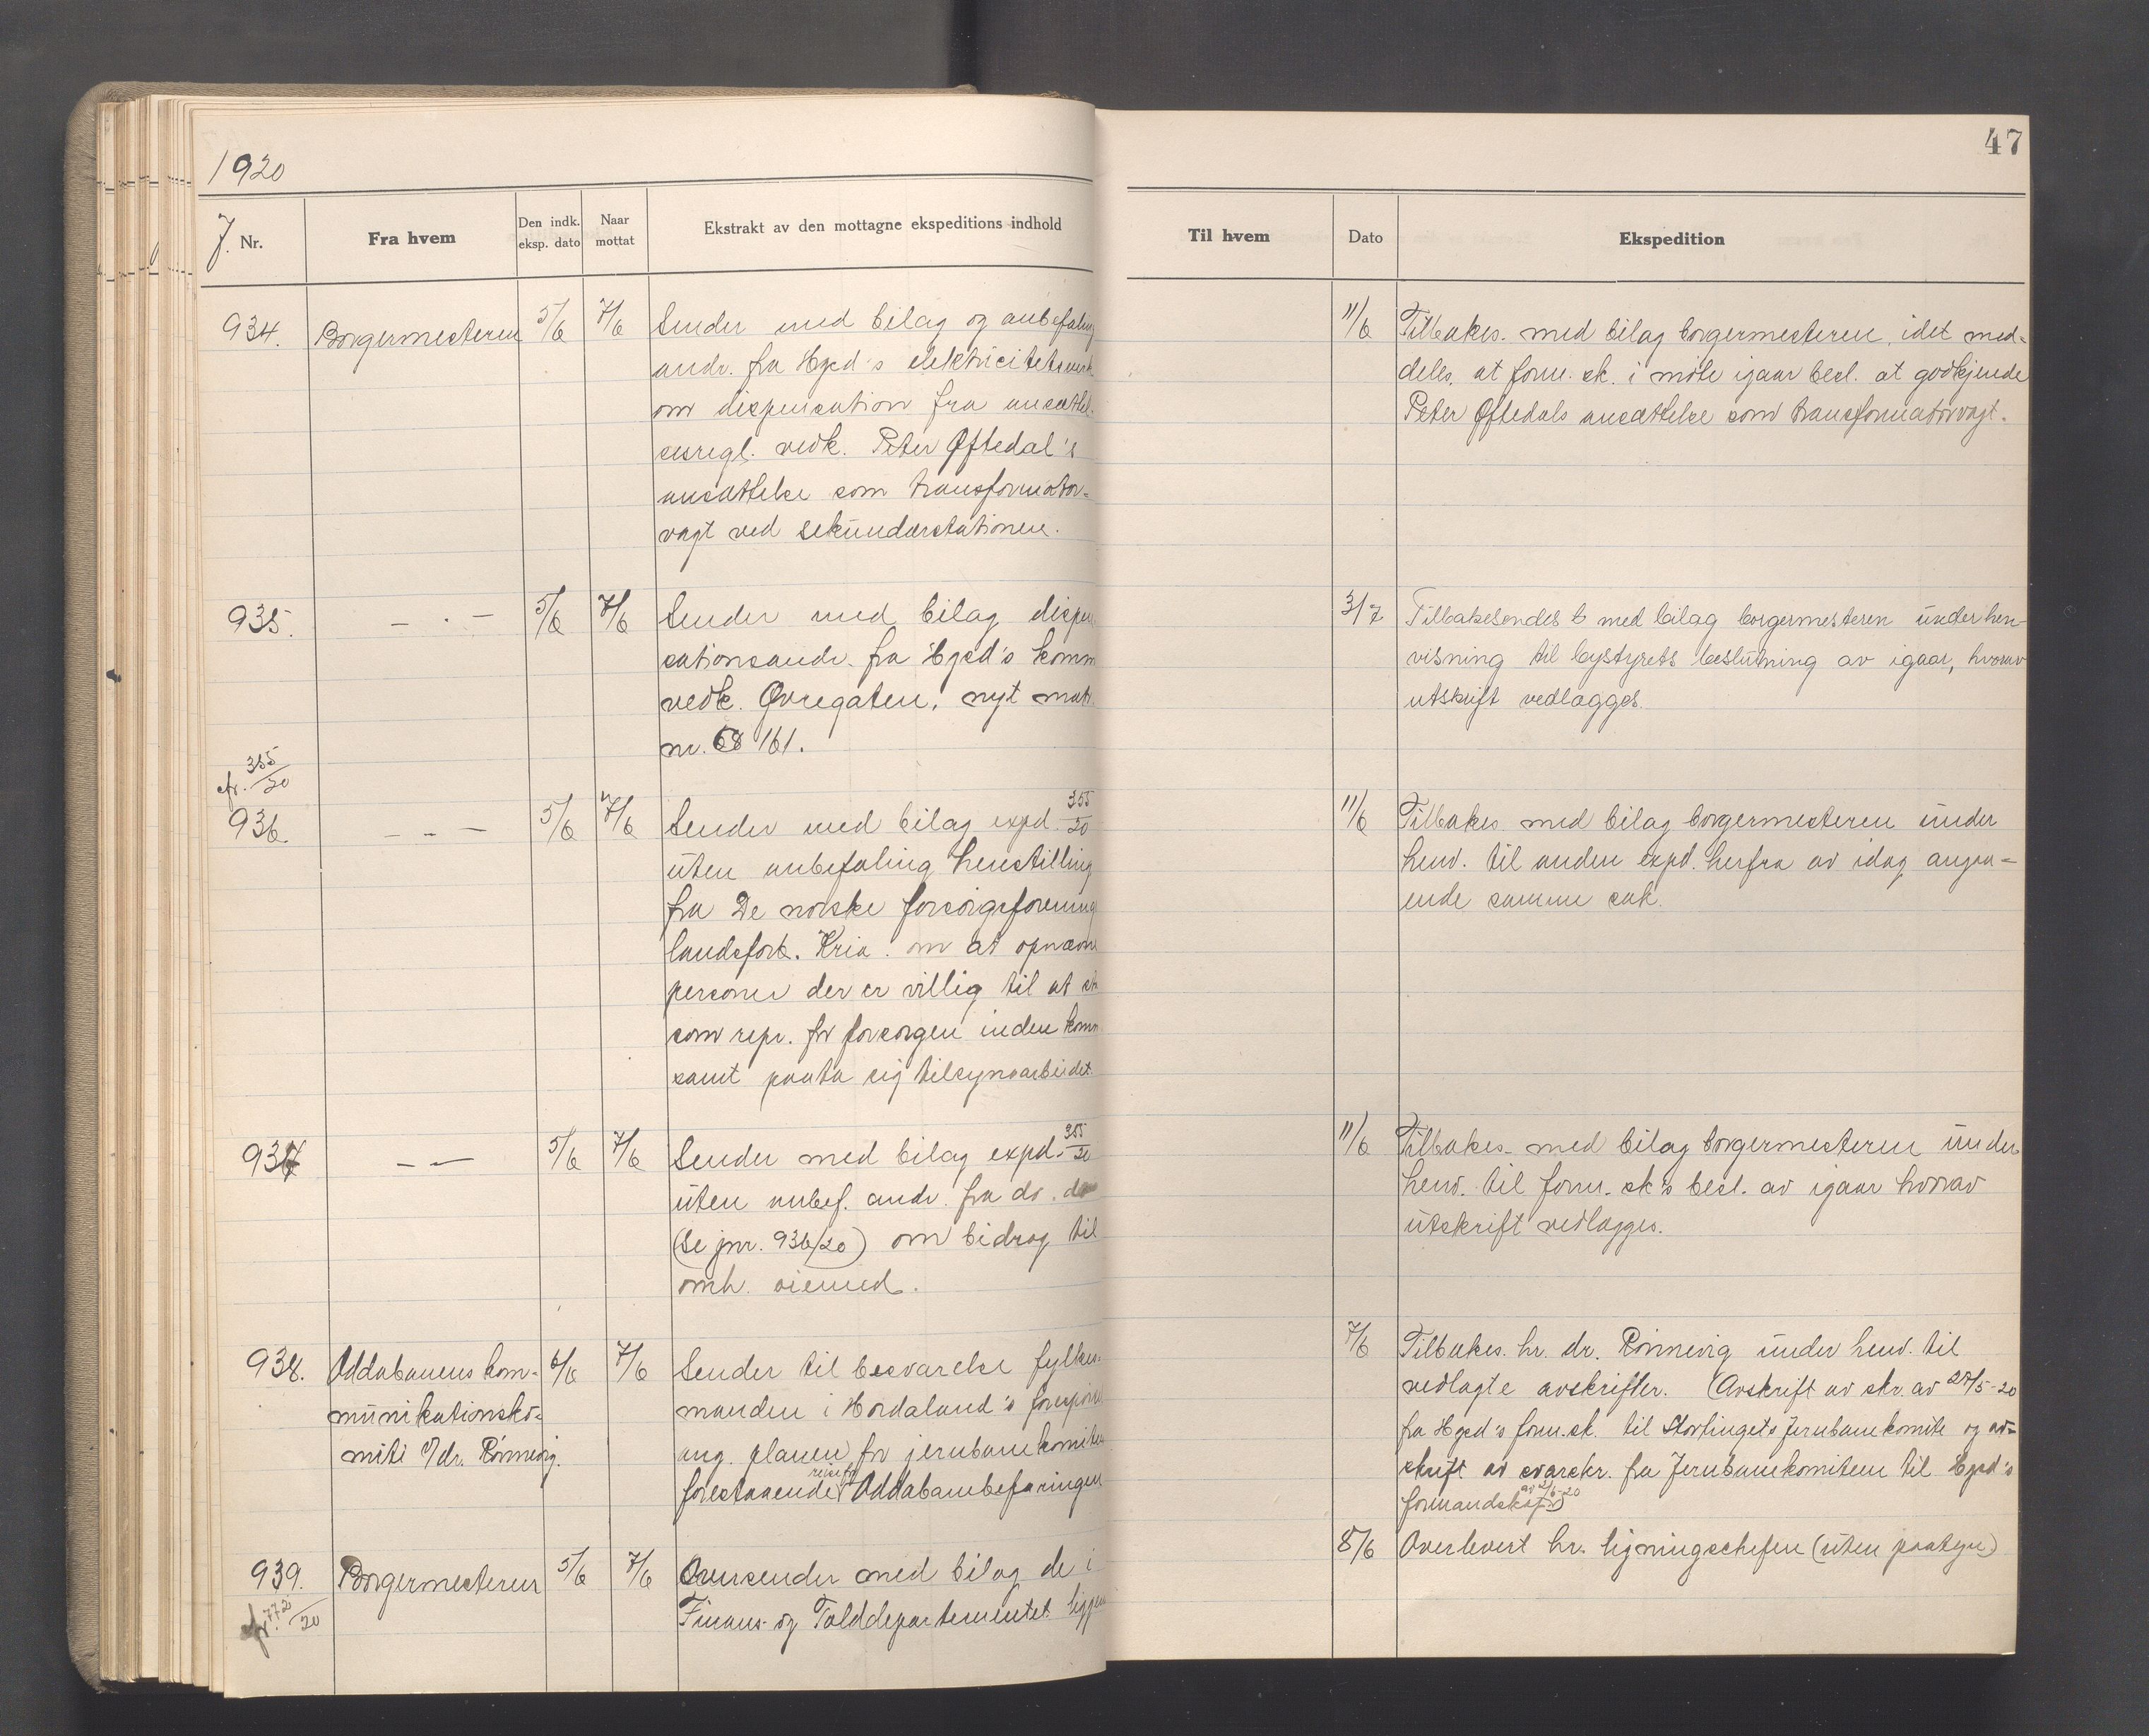 1920
47
J. Nr.
Fra hvem
Den indk. eksp. dato
Naar mottat
Ekstrakt av den mottagne ekspeditions indhold
Til hvem
Dato
Ekspedition
934.
Borgermesteren
5/6
7/6
Sender med bilag og anbefaling
andr. fra Hgsd's elektricitetsverk
om dispensation fra ansættel-
sesregl. vedk. Peter Oftedal's
ansættelse som transformator-
vagt ved sekundærstationen.
11/6
Tilbakes. med bilag borgermesteren, idet med-
deles, at form. sk. i møte igaar besl. at godkjende
Peter Oftedals ansættelse som transformatorvagt.
935.
— · —
5/6
7/6
Sender med bilag dispen
sationsandr. fra Hgsd's komm
vedk. Øvregaten, nyt matr.
nr. 68 161.
3/7
Tilbakesendes med bilag borgermesteren under hen-
visning til bystyrets beslutning av igaar, hvorav
utskrift vedlægges.
cfr. 355/20
936.
— - —
5/6
7/6
Sender med bilag expd. 355/20
uten anbefaling henstilling
fra De norske forsorgsforening
landsforb. Kria. om at opnævne
personer der er villig til at
som repr. for forsorgen inden kom
samt paata sig tilsynsarbeidet.
11/6
Tilbakes. med bilag borgermesteren under
henv. til anden expd. herfra av idag angaa-
ende samme sak.
937
— —
5/6
7/6
Sender med bilag expd. 355/20
uten anbef. andr. fra do. do
(Se jnr. 936/20) om bidrag til
omh. øiemed.
11/6
Tilbakes. med bilag borgermesteren under
henv. til form. sk's besl. av igaar hvorav
utskrift vedlægges.
938.
Oddabanens kom-
munikationsko-
mite v/ dr. Rønnevig.
6/6
7/6
Sender til besvarelse fylkes-
manden i Hordaland's forespørsel
ang. planen for jernbanekomiteen
forestaaende reise for Oddabanebefaringen
7/6
Tilbakes. hr. dr. Rønnevig under henv. til
vedlagte avskrifter. (Avskrift av skr. av 27/5-20
fra Hgsd's form.sk. til Stortingets Jernbanekomite og av-
skrift av svarskr. fra Jernbanekomiteen til Hgsd's
formandskap)
939.
cfr. 772/20
Borgermesteren
5/6
7/6
Oversender med bilag de i
Finans- og Tolddepartementet liggen
8/6
Overlevert hr. ligningschefen (uten paategn)